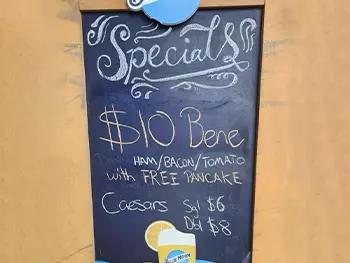 Specials
$10 Bene
HAM/BACON/TOMATO
with FREE PANCAKE
Caesars Sgl $6
Dbl $8
BLUE MOON